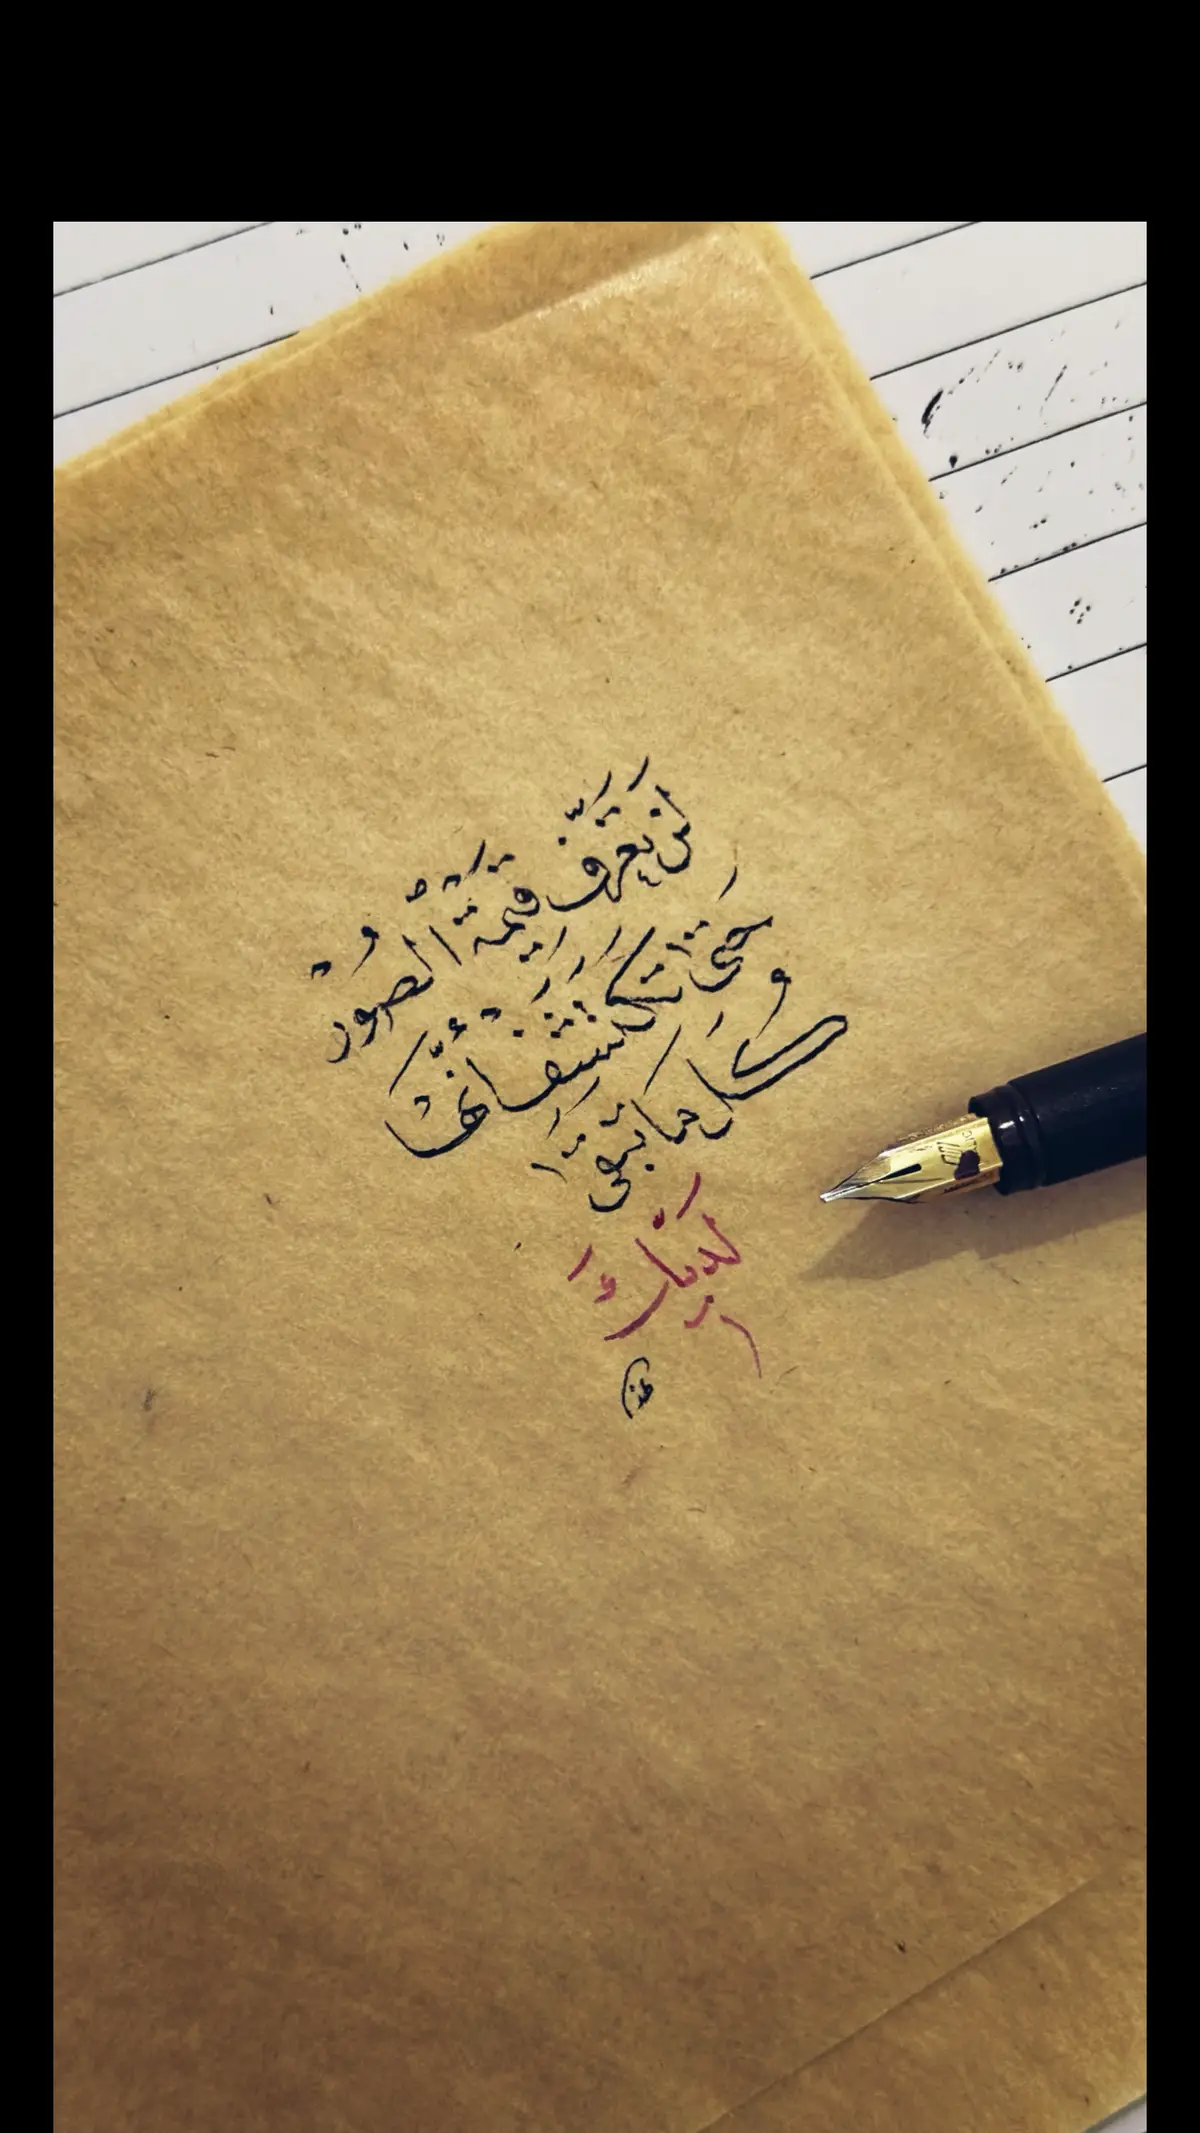 لَن تَعرِفَ قِيمَةَ الصُّوَرْ
حَتَّى تَكتَشِفَ أنَّهَا
كُلُّ مَا تَبَقَّى
لَدَيْكَ